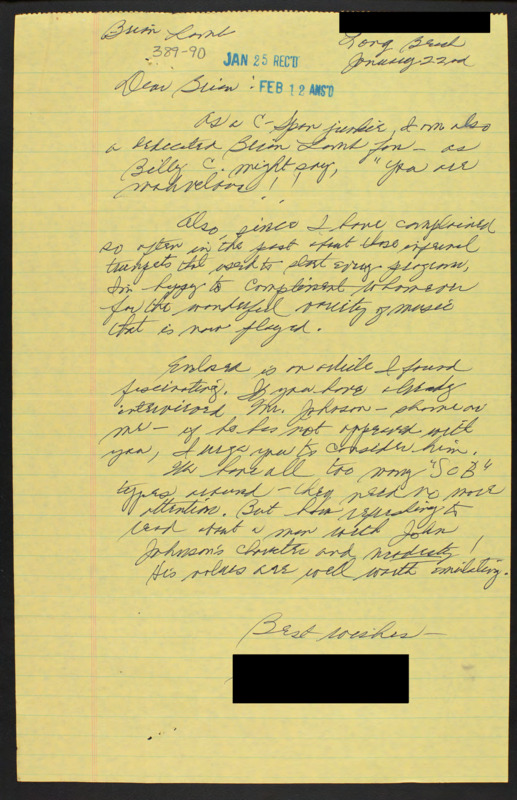 Brian Lamb
389-90
Long Beach
January 22nd
JAN 25 REC'D
Dear Brian:
FEB 12 ANS'D
As a C-Span junkie, I am also
a dedicated Brian Lamb fan - as
Billy C. might say, "You are
marvelous!!
Also, since I have complained
so often in the past about those infernal
trumpets that used to start every program,
I'm happy to complement whomever
for the wonderful variety of music
that is now played.
Enclosed is an article I found
fascinating. If you have already
interviewed Mr. Johnson - shame on
me - if he has not appeared with
you, I urge you to consider him.
We have all too many "SOB"
types around - they need no more
attention. But how refreshing to
read about a man with John
Johnson's character and modesty!
His values are well worth emulating.
Best wishes -